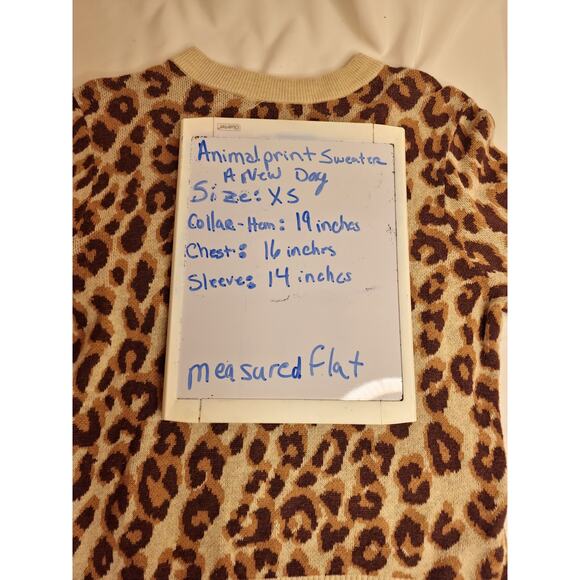 Animal print Sweater
A New Day
Size: XS
Collar-Hem: 19 inches
Chest: 16 inches
Sleeve: 14 inches
measured flat